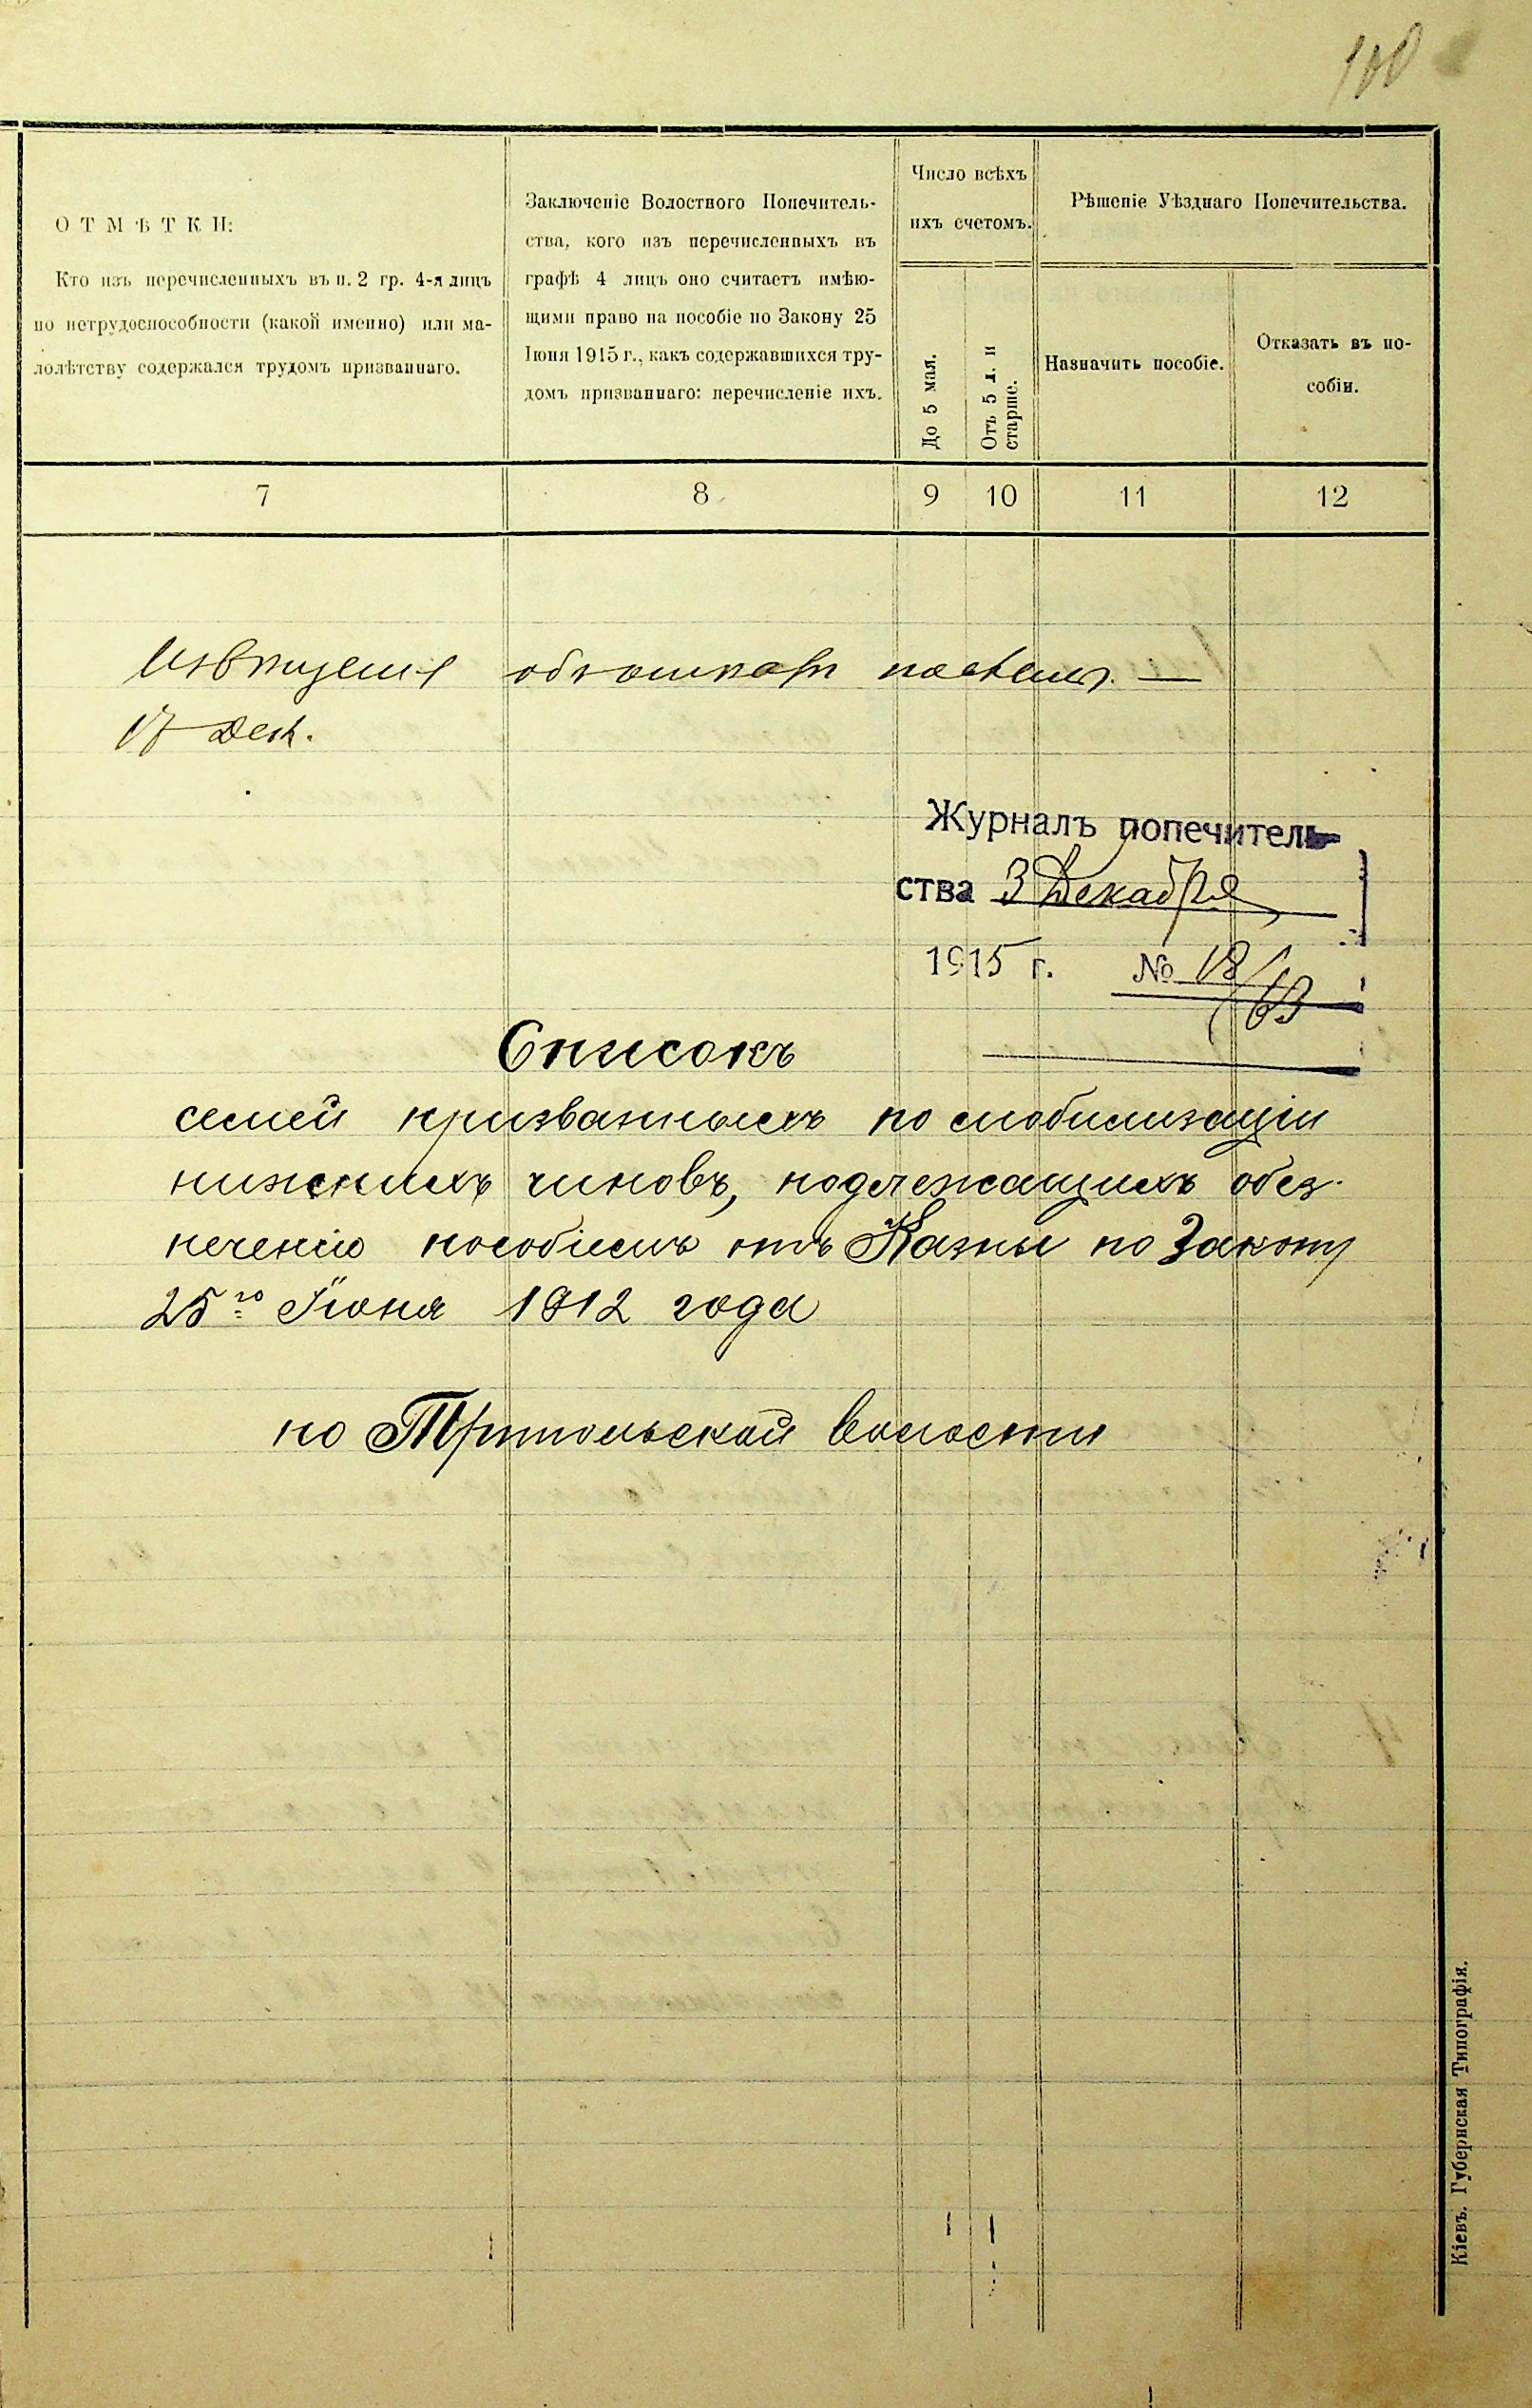 100
О Т М Ѣ Т К И:
Кто изъ перечисленныхъ въ п. 2 гр. 4-я лицъ
по нетрудоспособности (какой именно) или ма-
лолѣтству содержался трудомъ призваннаго.
Заключеніе Волостного Попечитель-
ства, кого изъ перечисленныхъ въ
графѣ 4 лицъ оно считаетъ имѣю-
щими право на пособіе по Закону 25
Іюня 1915 г., какъ содержавшихся тру-
домъ призваннаго: перечисленіе ихъ.
Число всѣхъ
ихъ счетомъ.
До 5 мая.
Отъ 5 л. и
старше.
Рѣшеніе Уѣзднаго Попечительства.
Назначить пособіе.
Отказать въ по-
собіи.
7 8 9 10 11 12
17 Дек.
Журналъ попечитель
ства 3 Декабря
1915 г. № 18/
63
Списокъ
семей призванныхъ по мобилизаціи
нижнихъ чиновъ, подлежащихъ обез-
печенію пособіемъ отъ Казны по Закону
25го Іюня 1912 года
по Трипольской волости
Кіевъ. Губернская Типографія.